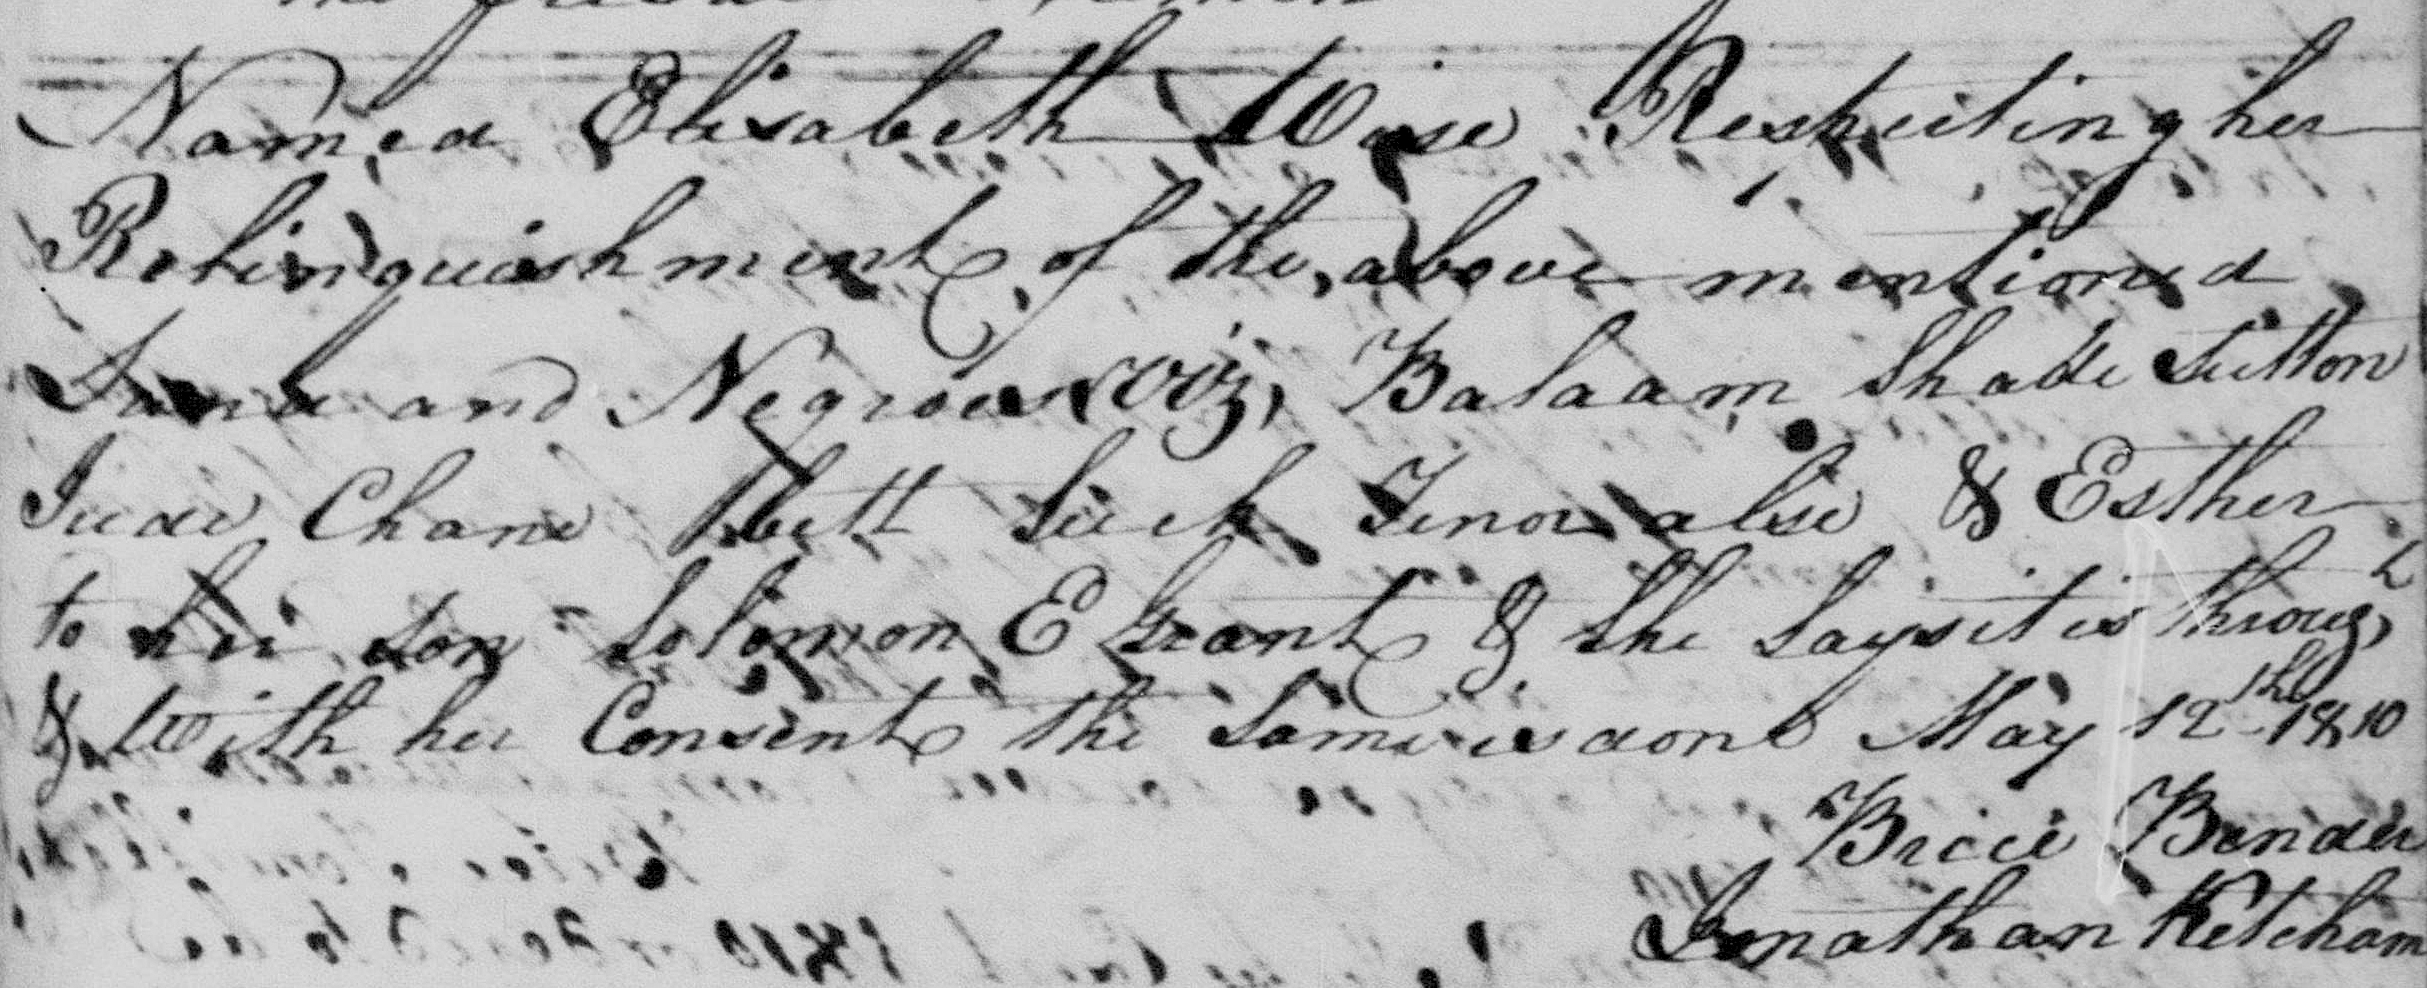 Named Elisabeth Wise Respecting her
Relinquishment of the above mentioned
Land and Negroes Viz, Balaam Shade Sutton
Jude Chane bett Suck Tenor alise & Esther
to her son Solomon E Grant & she Says it is throug,h
& With her Consent the Same is done May 12th 1810
Brice Bender
Jonathan Ketcham